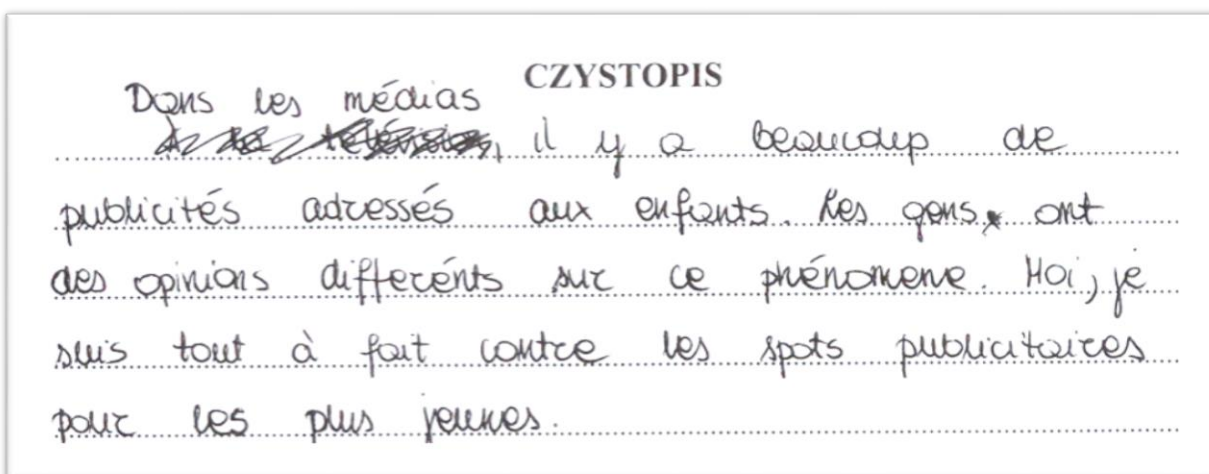 CZYSTOPIS
Dans les médias
il y a beaucoup de
publicités adressés aux enfants. Les gens ont
des opinions differénts sur ce phénomene. Moi, je
suis tout à fait contre les spots publicitaires
pour les plus jeunes.